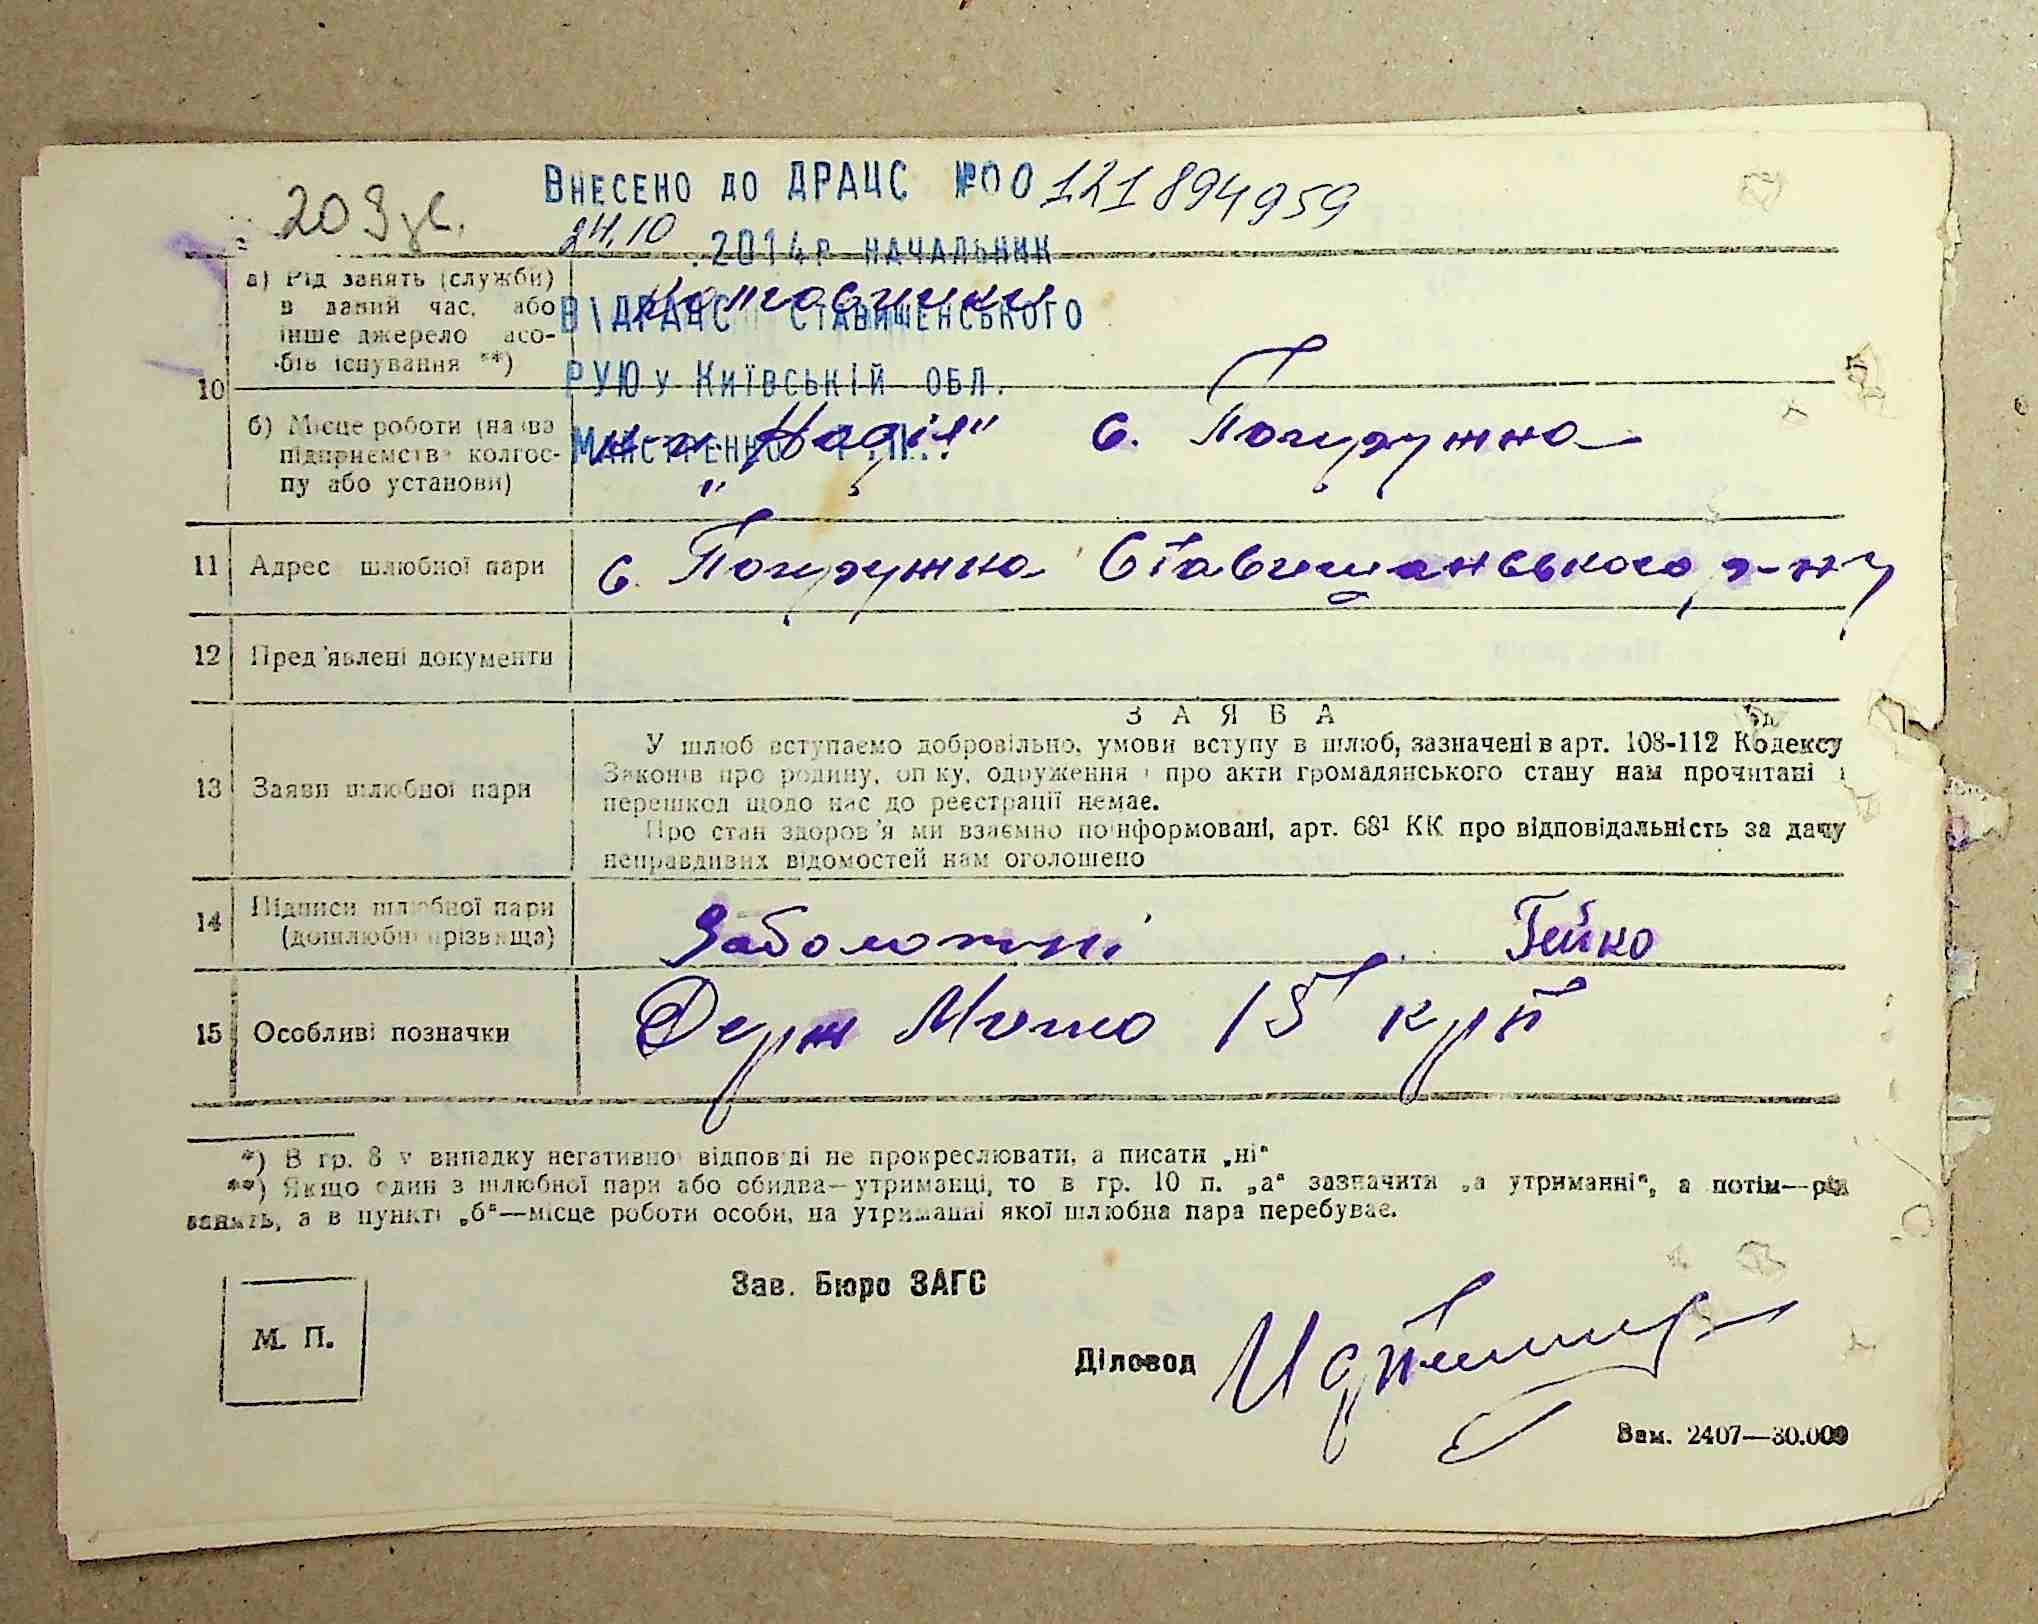 209 зв.
Внесено до ДРАЦС №00121894959
24.10 .2014р начальник
ВІДРАЦС Ставищенського
РУЮ у Київській обл.
10
а) Рід занять (служби)
в даний час, або
інше джерело засо-
бів існування **)
колгоспники
б) Місце роботи (назва
підприємства колгос-
пу або установи)
"Надія" с. Погружна
11 Адрес шлюбної пари
12 Пред'явлені документи
13 Заяви шлюбної пари
ЗАЯВА
У шлюб вступаємо добровільно, умови вступу в шлюб, зазначені в арт. 108-112 Кодексу
Законів про родину, опіку, одруження і про акти громадянського стану нам прочитані і
перешкод щодо нас до реєстрації немає.
Про стан здоров'я ми взаємно поінформовані, арт. 68¹ КК про відповідальність за дачу
неправдивих відомостей нам оголошено
14 Підписи шлюбної пари
(дошлюбні прізвища)
Гейко
15 Особливі позначки
Держ Мито 15 крб
*) В гр. 8 у випадку негативної відповіді не прокреслювати, а писати „ні“
**) Якщо один з шлюбної пари або обидва—утриманці, то в гр. 10 п. „а“ зазначити „а утриманні“, а потім—рід
занять, а в пункті „б“—місце роботи особи, на утриманні якої шлюбна пара перебуває.
Зав. Бюро ЗАГС
М. П.
Діловод
Зам. 2407—30.000